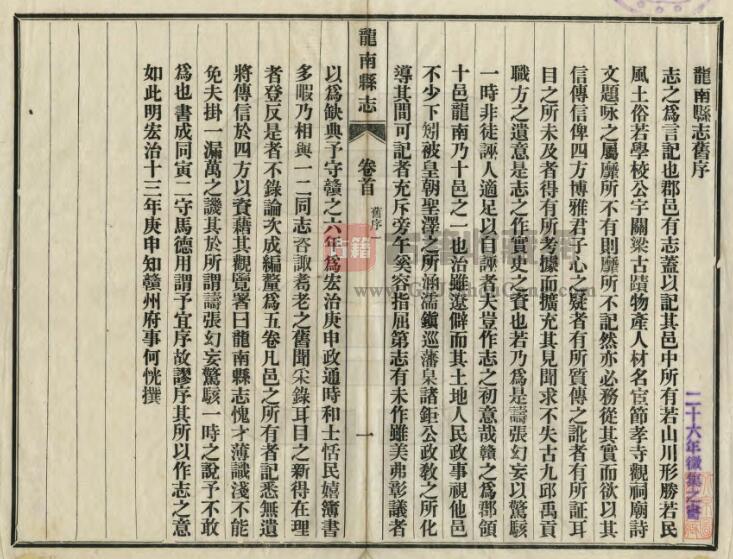 龍南縣志舊序
志之爲言記也郡邑有志蓋以記其邑中所有若山川形勝若民
風土俗若學校公宇關梁古蹟物產人材名宦節孝寺觀祠廟詩
文題咏之屬靡所不有則靡所不記然亦必務從其實而欲以其
信傳信俾四方博雅君子心之疑者有所質傳之訛者有所証耳
目之所未及者得有所考據而擴充其見聞求不失古九邱禹貢
職方之遺意是志之作實史之資也若乃爲是譸張幻妄以驚駭
一時非徒誣人適足以自誣者夫豈作志之初意哉贛之爲郡領
十邑龍南乃十邑之一也治雖遼僻而其土地人民政事視他邑
不少下矧被皇朝聖澤之所涵濡鎭巡藩臬諸鉅公政敎之所化
導其間可記者充斥旁午奚容指屈第志有未作雖美弗彰議者
龍南縣志
卷首
舊序
一
以爲缺典予守贛之六年爲宏治庚申政通時和士恬民嬉簿書
多暇乃相與一二同志咨諏耈老之舊聞采錄耳目之新得在理
者登反是者不錄論次成編釐爲五卷凡邑之所有者記悉無遺
將傳信於四方以資藉其觀覽署曰龍南縣志愧才薄識淺不能
免夫掛一漏萬之譏其於所謂譸張幻妄驚駭一時之說予不敢
爲也書成同寅二守馬德用謂予宜序故謬序其所以作志之意
如此明宏治十三年庚申知贛州府事何恍撰
二十六年徵集之書
古籍